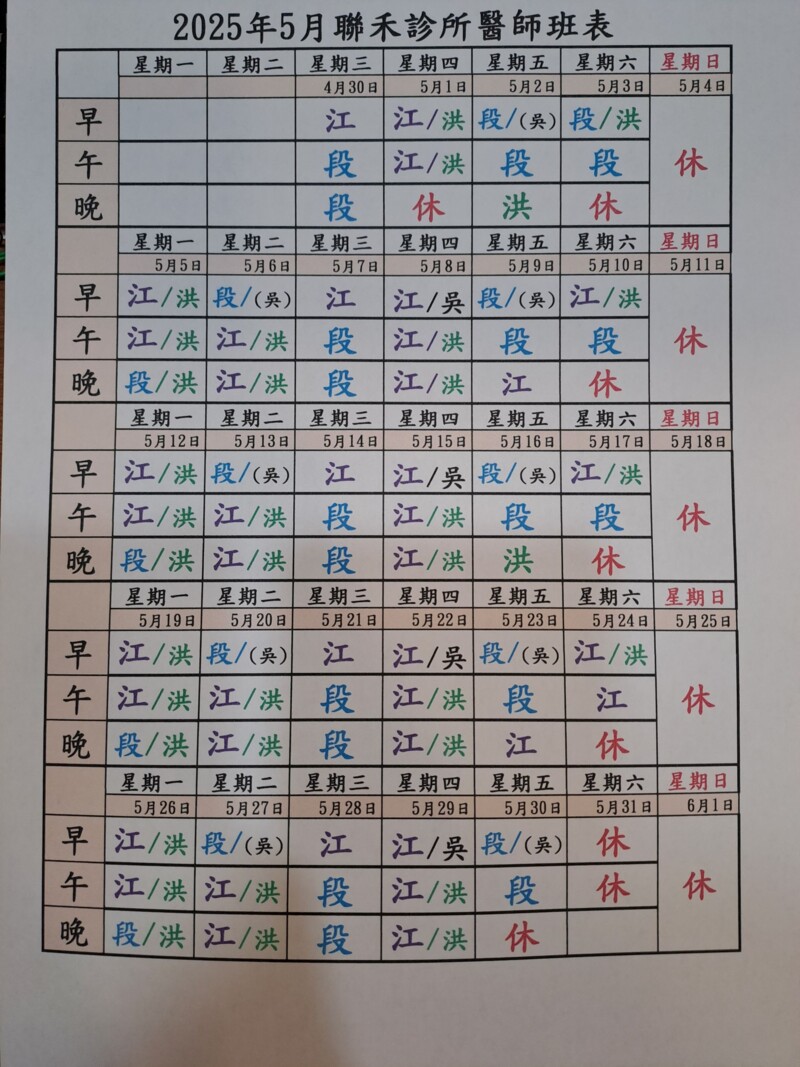 2025年5月聯禾診所醫師班表
星期一 星期二 星期三 星期四 星期五 星期六 星期日
4月30日 5月1日 5月2日 5月3日 5月4日
早 江 江/洪 段/(吳) 段/洪
午 段 江/洪 段 段 休
晚 段 休 洪 休
星期一 星期二 星期三 星期四 星期五 星期六 星期日
5月5日 5月6日 5月7日 5月8日 5月9日 5月10日 5月11日
早 江/洪 段/(吳) 江 江/吳 段/(吳) 江/洪
午 江/洪 江/洪 段 江/洪 段 段 休
晚 段/洪 江/洪 段 江/洪 江 休
星期一 星期二 星期三 星期四 星期五 星期六 星期日
5月12日 5月13日 5月14日 5月15日 5月16日 5月17日 5月18日
早 江/洪 段/(吳) 江 江/吳 段/(吳) 江/洪
午 江/洪 江/洪 段 江/洪 段 段 休
晚 段/洪 江/洪 段 江/洪 洪 休
星期一 星期二 星期三 星期四 星期五 星期六 星期日
5月19日 5月20日 5月21日 5月22日 5月23日 5月24日 5月25日
早 江/洪 段/(吳) 江 江/吳 段/(吳) 江/洪
午 江/洪 江/洪 段 江/洪 段 江 休
晚 段/洪 江/洪 段 江/洪 江 休
星期一 星期二 星期三 星期四 星期五 星期六 星期日
5月26日 5月27日 5月28日 5月29日 5月30日 5月31日 6月1日
早 江/洪 段/(吳) 江 江/吳 段/(吳) 休
午 江/洪 江/洪 段 江/洪 段 休 休
晚 段/洪 江/洪 段 江/洪 休